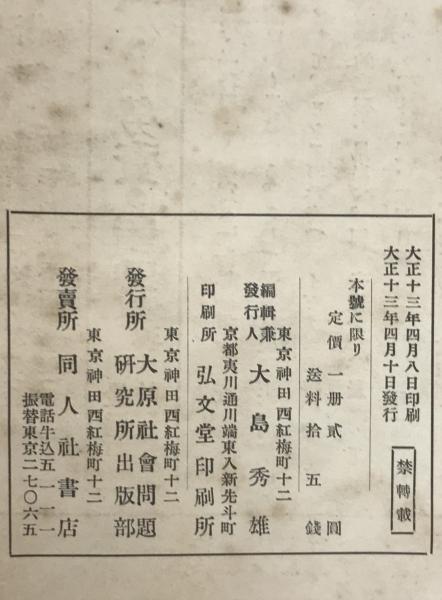 大正十三年四月八日印刷
大正十三年四月十日發行
禁轉載
本號に限り
定價一册貳圓
送料拾五錢
東京神田西紅梅町十二
編輯兼
發行人 大島秀雄
京都夷川通川端東入新先斗町
印刷所 弘文堂印刷所
東京神田西紅梅町十二
發行所 大原社會問題
研究所出版部
東京神田西紅梅町十二
發賣所 同人社書店
電話牛込五一一一
振替東京二七〇六五